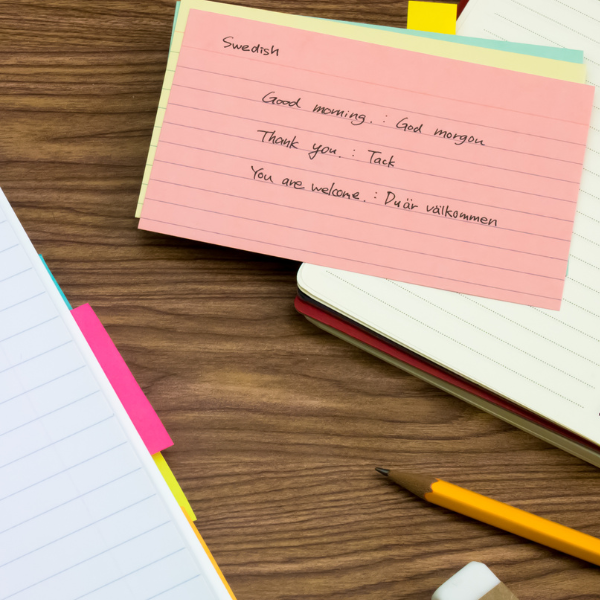 Swedish
Good morning. : God morgon
Thank you. : Tack
You are welcome. : Du är välkommen